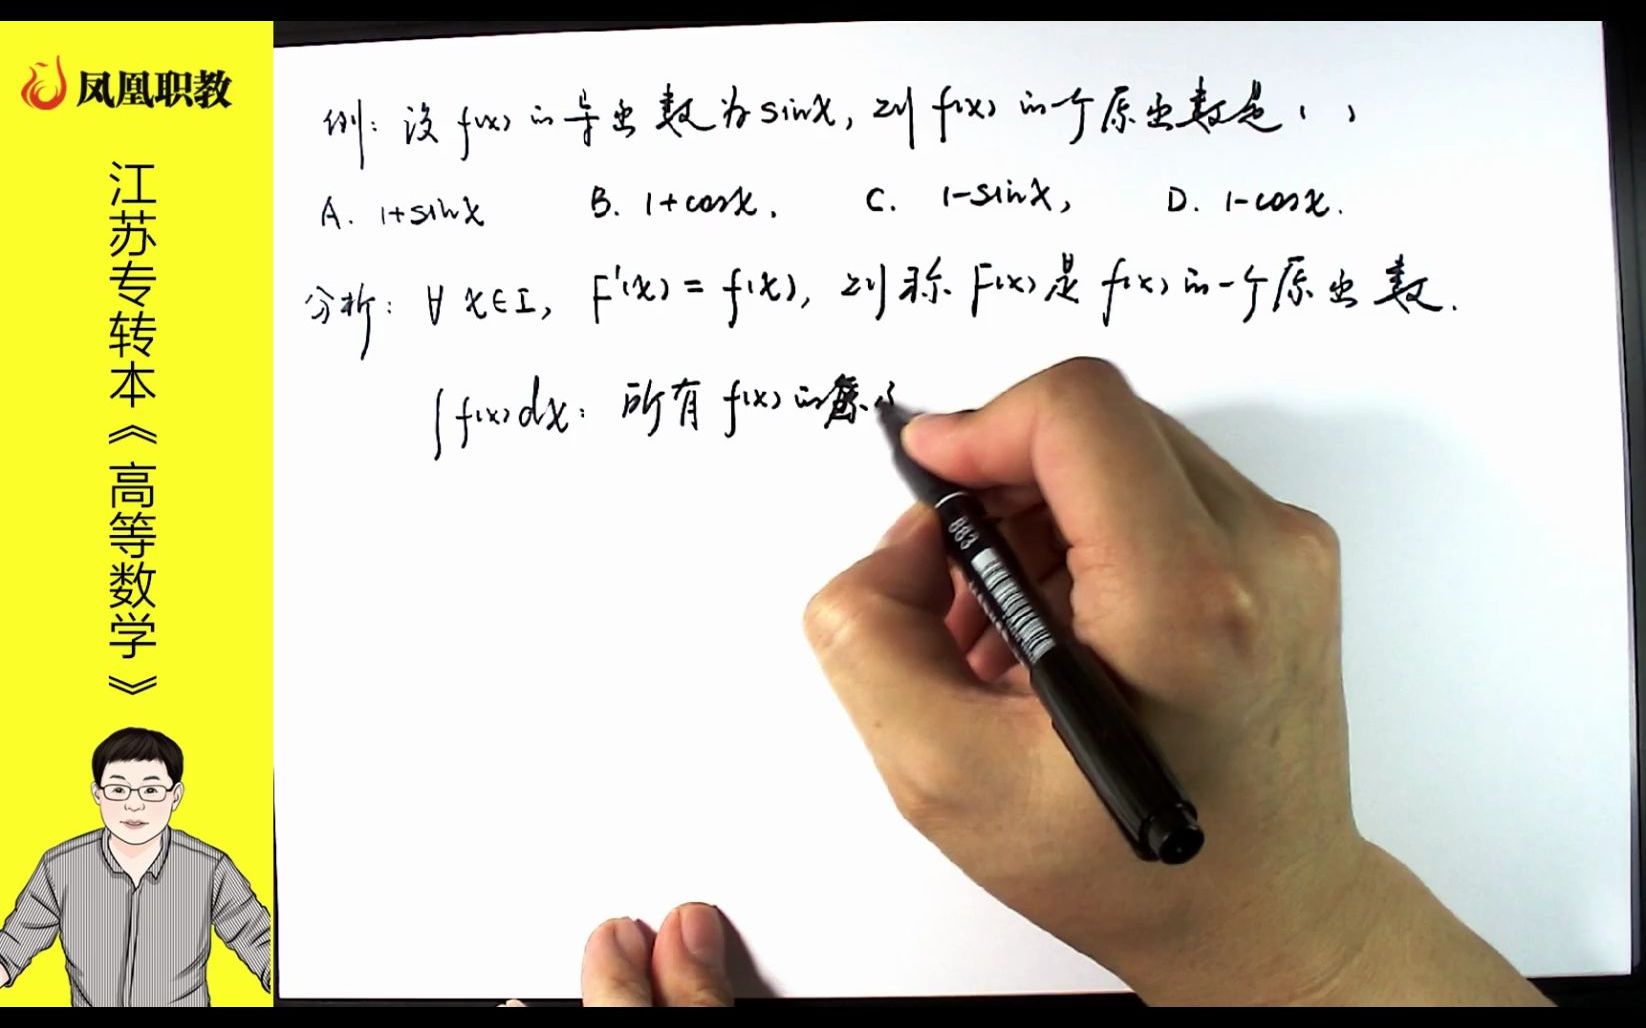 凤凰职教
江苏专转本《高等数学》
例：设 f(x) 的导函数为 sinx, 则 f(x) 的一个原函数是 ( )
A. 1+sinx B. 1+cosx. C. 1-sinx, D. 1-cosx.
分析：∀ x∈I, F'(x) = f(x), 则称 F(x) 是 f(x) 的一个原函数.
∫f(x)dx: 所有 f(x) 的原
883